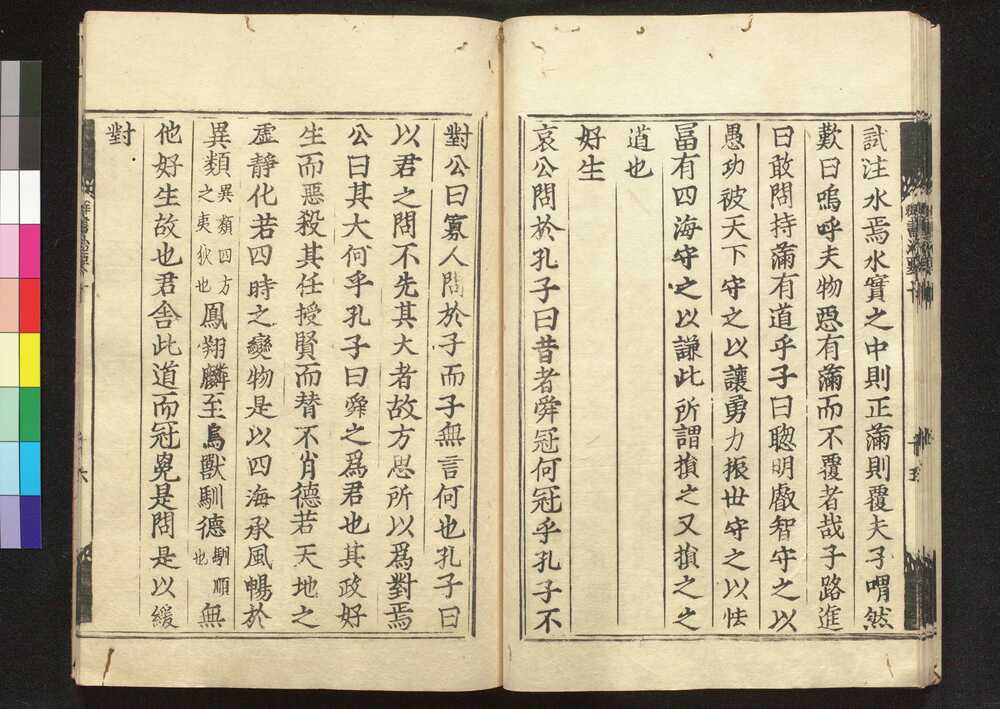 試注水焉水實之中則正滿則覆夫子喟然
歎曰嗚呼夫物惡有滿而不覆者哉子路進
曰敢問持滿有道乎子曰聰明叡智守之以
愚功被天下守之以讓勇力振世守之以怯
冨有四海守之以謙此所謂損之又損之之
道也
好生
哀公問於孔子曰昔者舜冠何冠乎孔子不
對公曰寡人問於子而子無言何也孔子曰
以君之問不先其大者故方思所以爲對焉
公曰其大何乎孔子曰舜之爲君也其政好
生而惡殺其任授賢而替不肖德若天地之
虛静化若四時之變物是以四海承風暢於
異類異類四方之夷狄也鳳翔麟至鳥獸馴德馴順也無
他好生故也君舎此道而冠冕是問是以緩
對